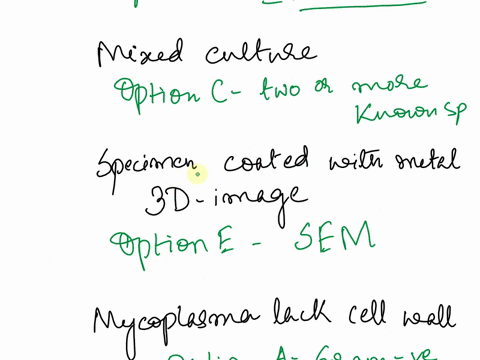 Mixed culture
Option C - two or more
Known sp
Specimen coated with metal
3D - image
Option E - SEM
Mycoplasma lack cell wall
Option A - Gram -ve